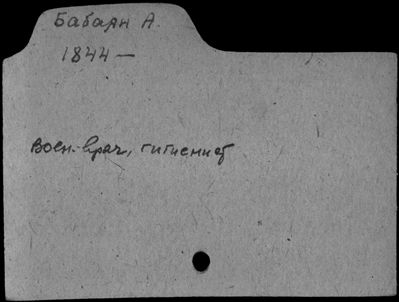 Бабаян А.
1844 —
Воен. врач, гигиенист